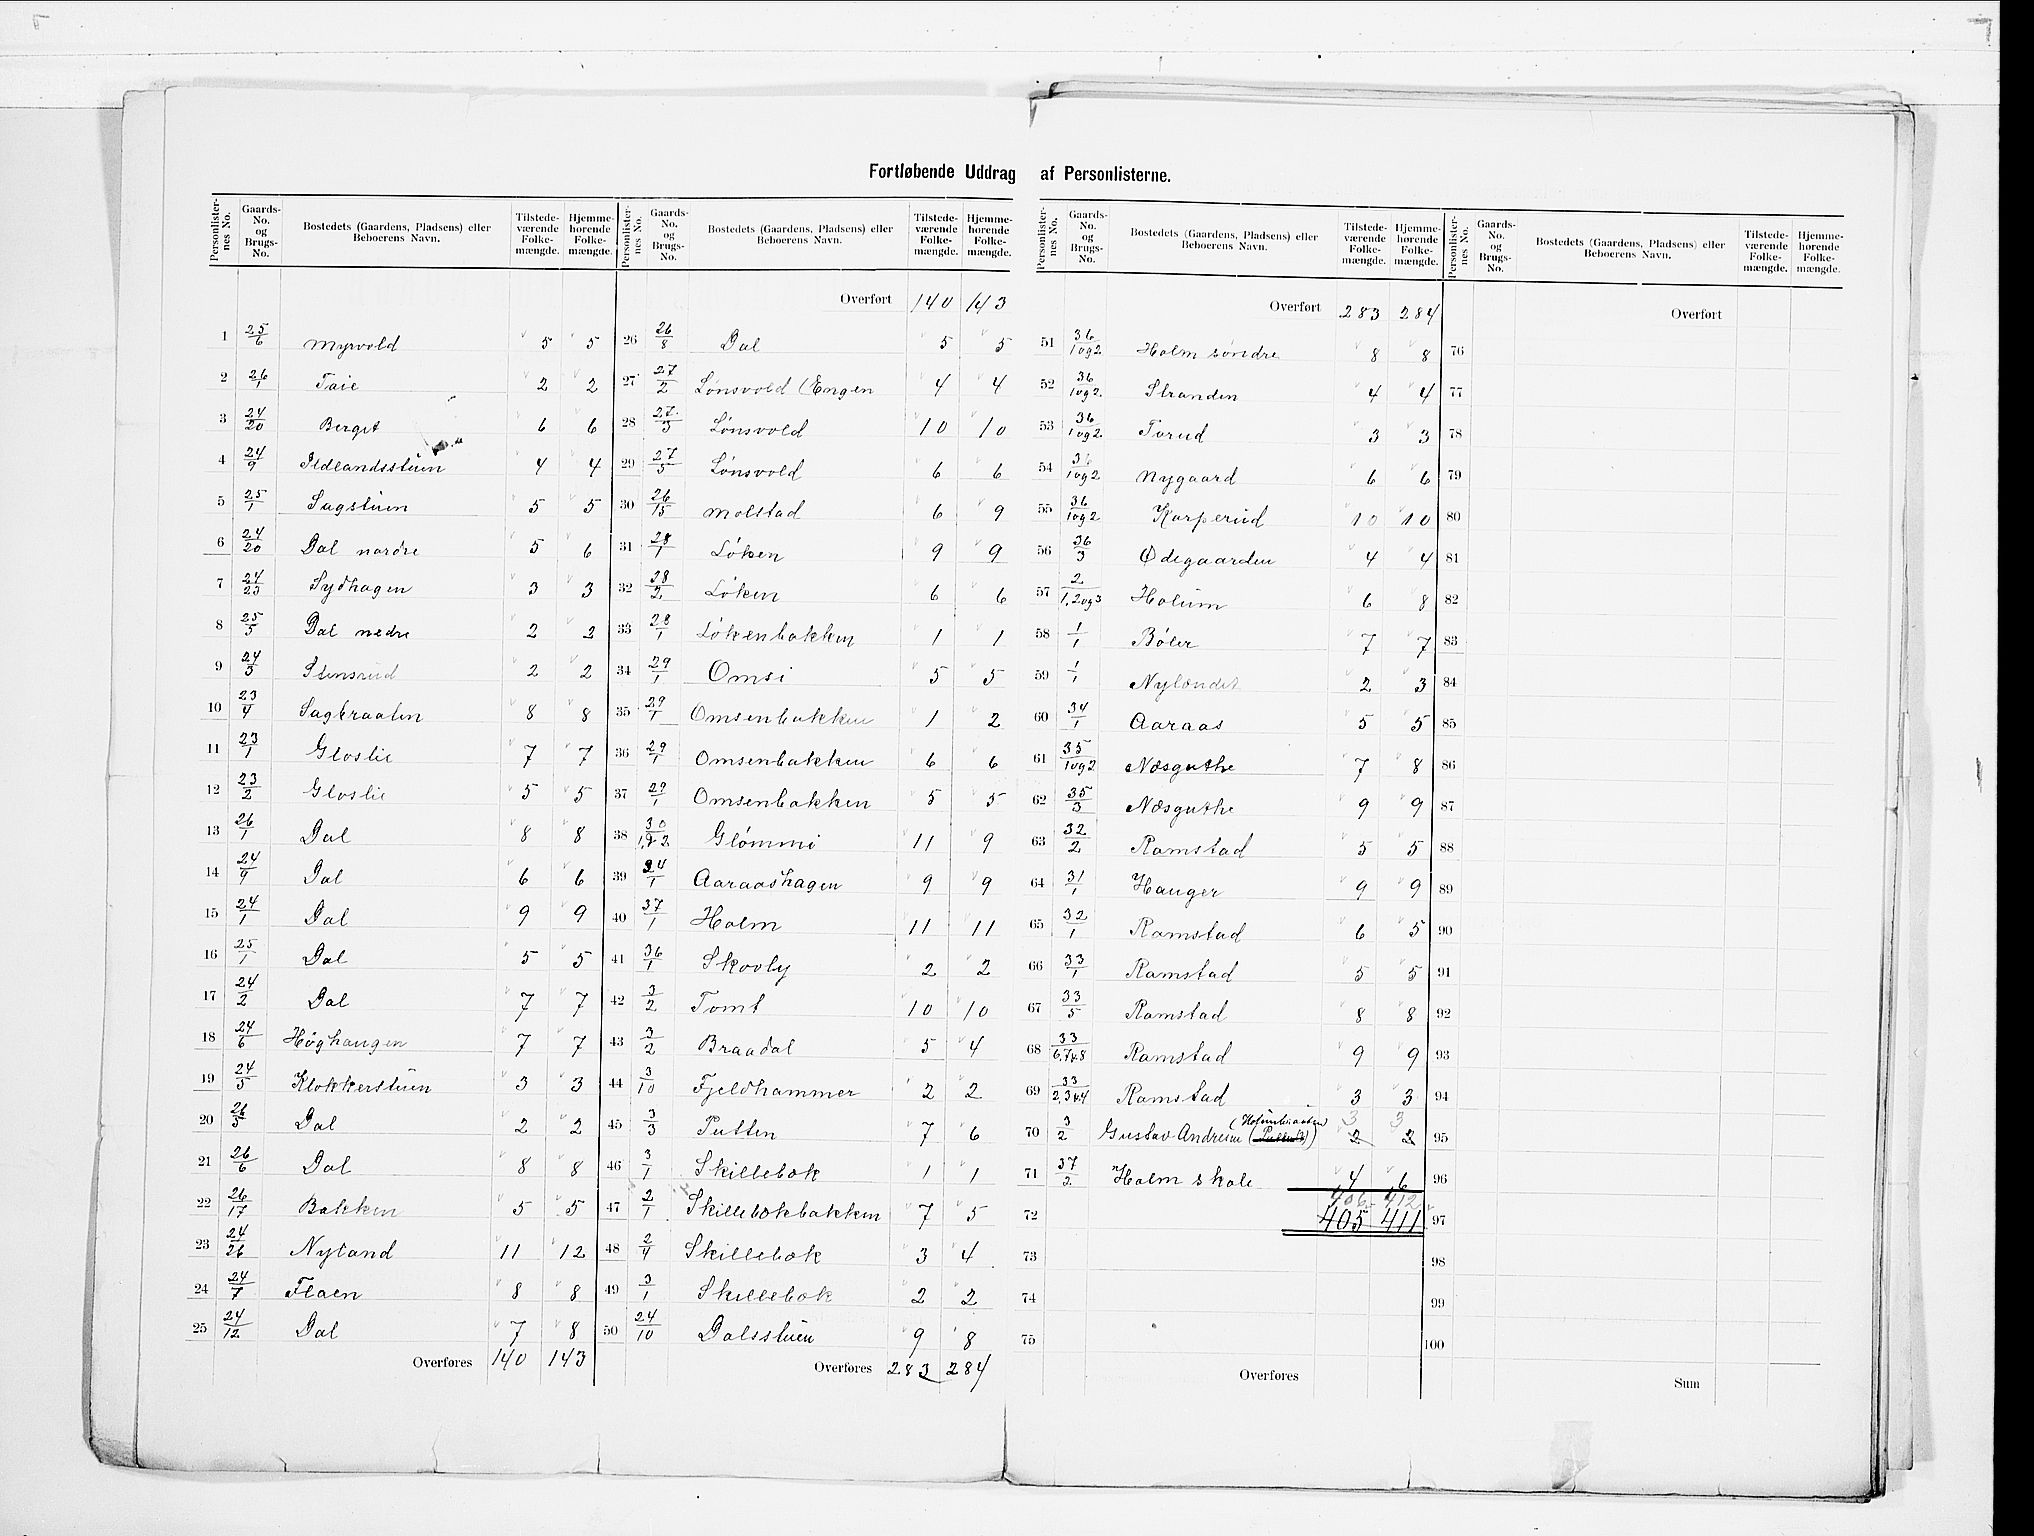 Fortløbende Uddrag af Personlisterne.
Personlister-nes No. Gaards-No. og Brugs-No. Bostedets (Gaardens, Pladsens) eller Beboerens Navn. Tilstede-værende Folke-mængde. Hjemme-hørende Folke-mængde.
1 25/6 Myrvold 5 5
2 26/1 Taie 2 2
3 24/20 Berget 6 6
4 24/9 Ildlandsstuen 4 4
5 25/1 Sagstuen 5 5
6 24/20 Dal nordre 5 6
7 24/23 Sydhagen 3 3
8 25/5 Dal nedre 2 2
9 24/3 Stensrud 2 2
10 23/4 Sagbraaten 8 8
11 23/1 Gloslie 7 7
12 23/2 Gloslie 5 5
13 26/1 Dal 8 8
14 24/9 Dal 6 6
15 24/1 Dal 9 9
16 25/1 Dal 5 5
17 24/2 Dal 7 7
18 24/6 Høghaugen 7 7
19 24/5 Klokkerstuen 3 3
20 26/5 Dal 2 2
21 26/6 Dal 8 8
22 26/17 Bakken 5 5
23 24/26 Nyland 11 12
24 24/7 Flaen 8 8
25 24/12 Dal 7 8
Overføres 140 143
Personlister-nes No. Gaards-No. og Brugs-No. Bostedets (Gaardens, Pladsens) eller Beboerens Navn. Tilstede-værende Folke-mængde. Hjemme-hørende Folke-mængde.
Overført 140 143
26 26/8 Dal 5 5
27 27/2 Lønsvold (Engen 4 4
28 27/3 Lønsvold 10 10
29 27/5 Lønsvold 6 6
30 26/15 Molstad 6 9
31 28/1 Løken 9 9
32 28/2 Løken 6 6
33 28/1 Løkenbakken 1 1
34 29/1 Omsi 5 5
35 29/1 Omsenbakken 1 2
36 29/1 Omsenbakken 6 6
37 29/1 Omsenbakken 5 5
38 30/1,2 Glømmi 11 9
39 34/1 Aaraashagen 9 9
40 37/1 Holm 11 11
41 36/1 Skovly 2 2
42 3/2 Tomt 10 10
43 3/2 Braadal 5 4
44 3/10 Fjeldhammer 2 2
45 3/3 Putten 7 6
46 3/1 Skillebæk 1 1
47 2/1 Skillebækbakken 7 5
48 2/4 Skillebæk 3 4
49 3/1 Skillebæk 2 2
50 24/10 Dalsstuen 9 8
Overføres 283 284
Personlister-nes No. Gaards-No. og Brugs-No. Bostedets (Gaardens, Pladsens) eller Beboerens Navn. Tilstede-værende Folke-mængde. Hjemme-hørende Folke-mængde.
Overført 283 284
51 36/1 og 2 Holm søndre 8 8
52 36/1 og 2 Stranden 4 4
53 36/1 og 2 Torud 3 3
54 36/1 og 2 Nygaard 6 6
55 36/1 og 2 Korperud 10 10
56 36/3 Ødegaarden 4 4
57 2/1,2 og 3 Holum 6 8
58 1/1 Bøler 7 7
59 1/1 Nylændet 2 3
60 34/1 Aaraas 5 5
61 35/1 og 2 Næsguthe 7 8
62 35/3 Næsguthe 9 9
63 32/2 Ramstad 5 5
64 31/1 Hauger 9 9
65 32/1 Ramstad 6 5
66 33/1 Ramstad 5 5
67 33/5 Ramstad 8 8
68 33/6,7 & 8 Ramstad 9 9
69 33/2,3 & 4 Ramstad 3 3
70 3/2 Gustav Andrew 2 2
3 3
71 37/2 Holm skole 4 6
406 412
72 405 411
73
74
75
Overføres
Personlister-nes No. Gaards-No. og Brugs-No. Bostedets (Gaardens, Pladsens) eller Beboerens Navn. Tilstede-værende Folke-mængde. Hjemme-hørende Folke-mængde.
Overført
76
77
78
79
80
81
82
83
84
85
86
87
88
89
90
91
92
93
94
95
96
97
98
99
100
Sum